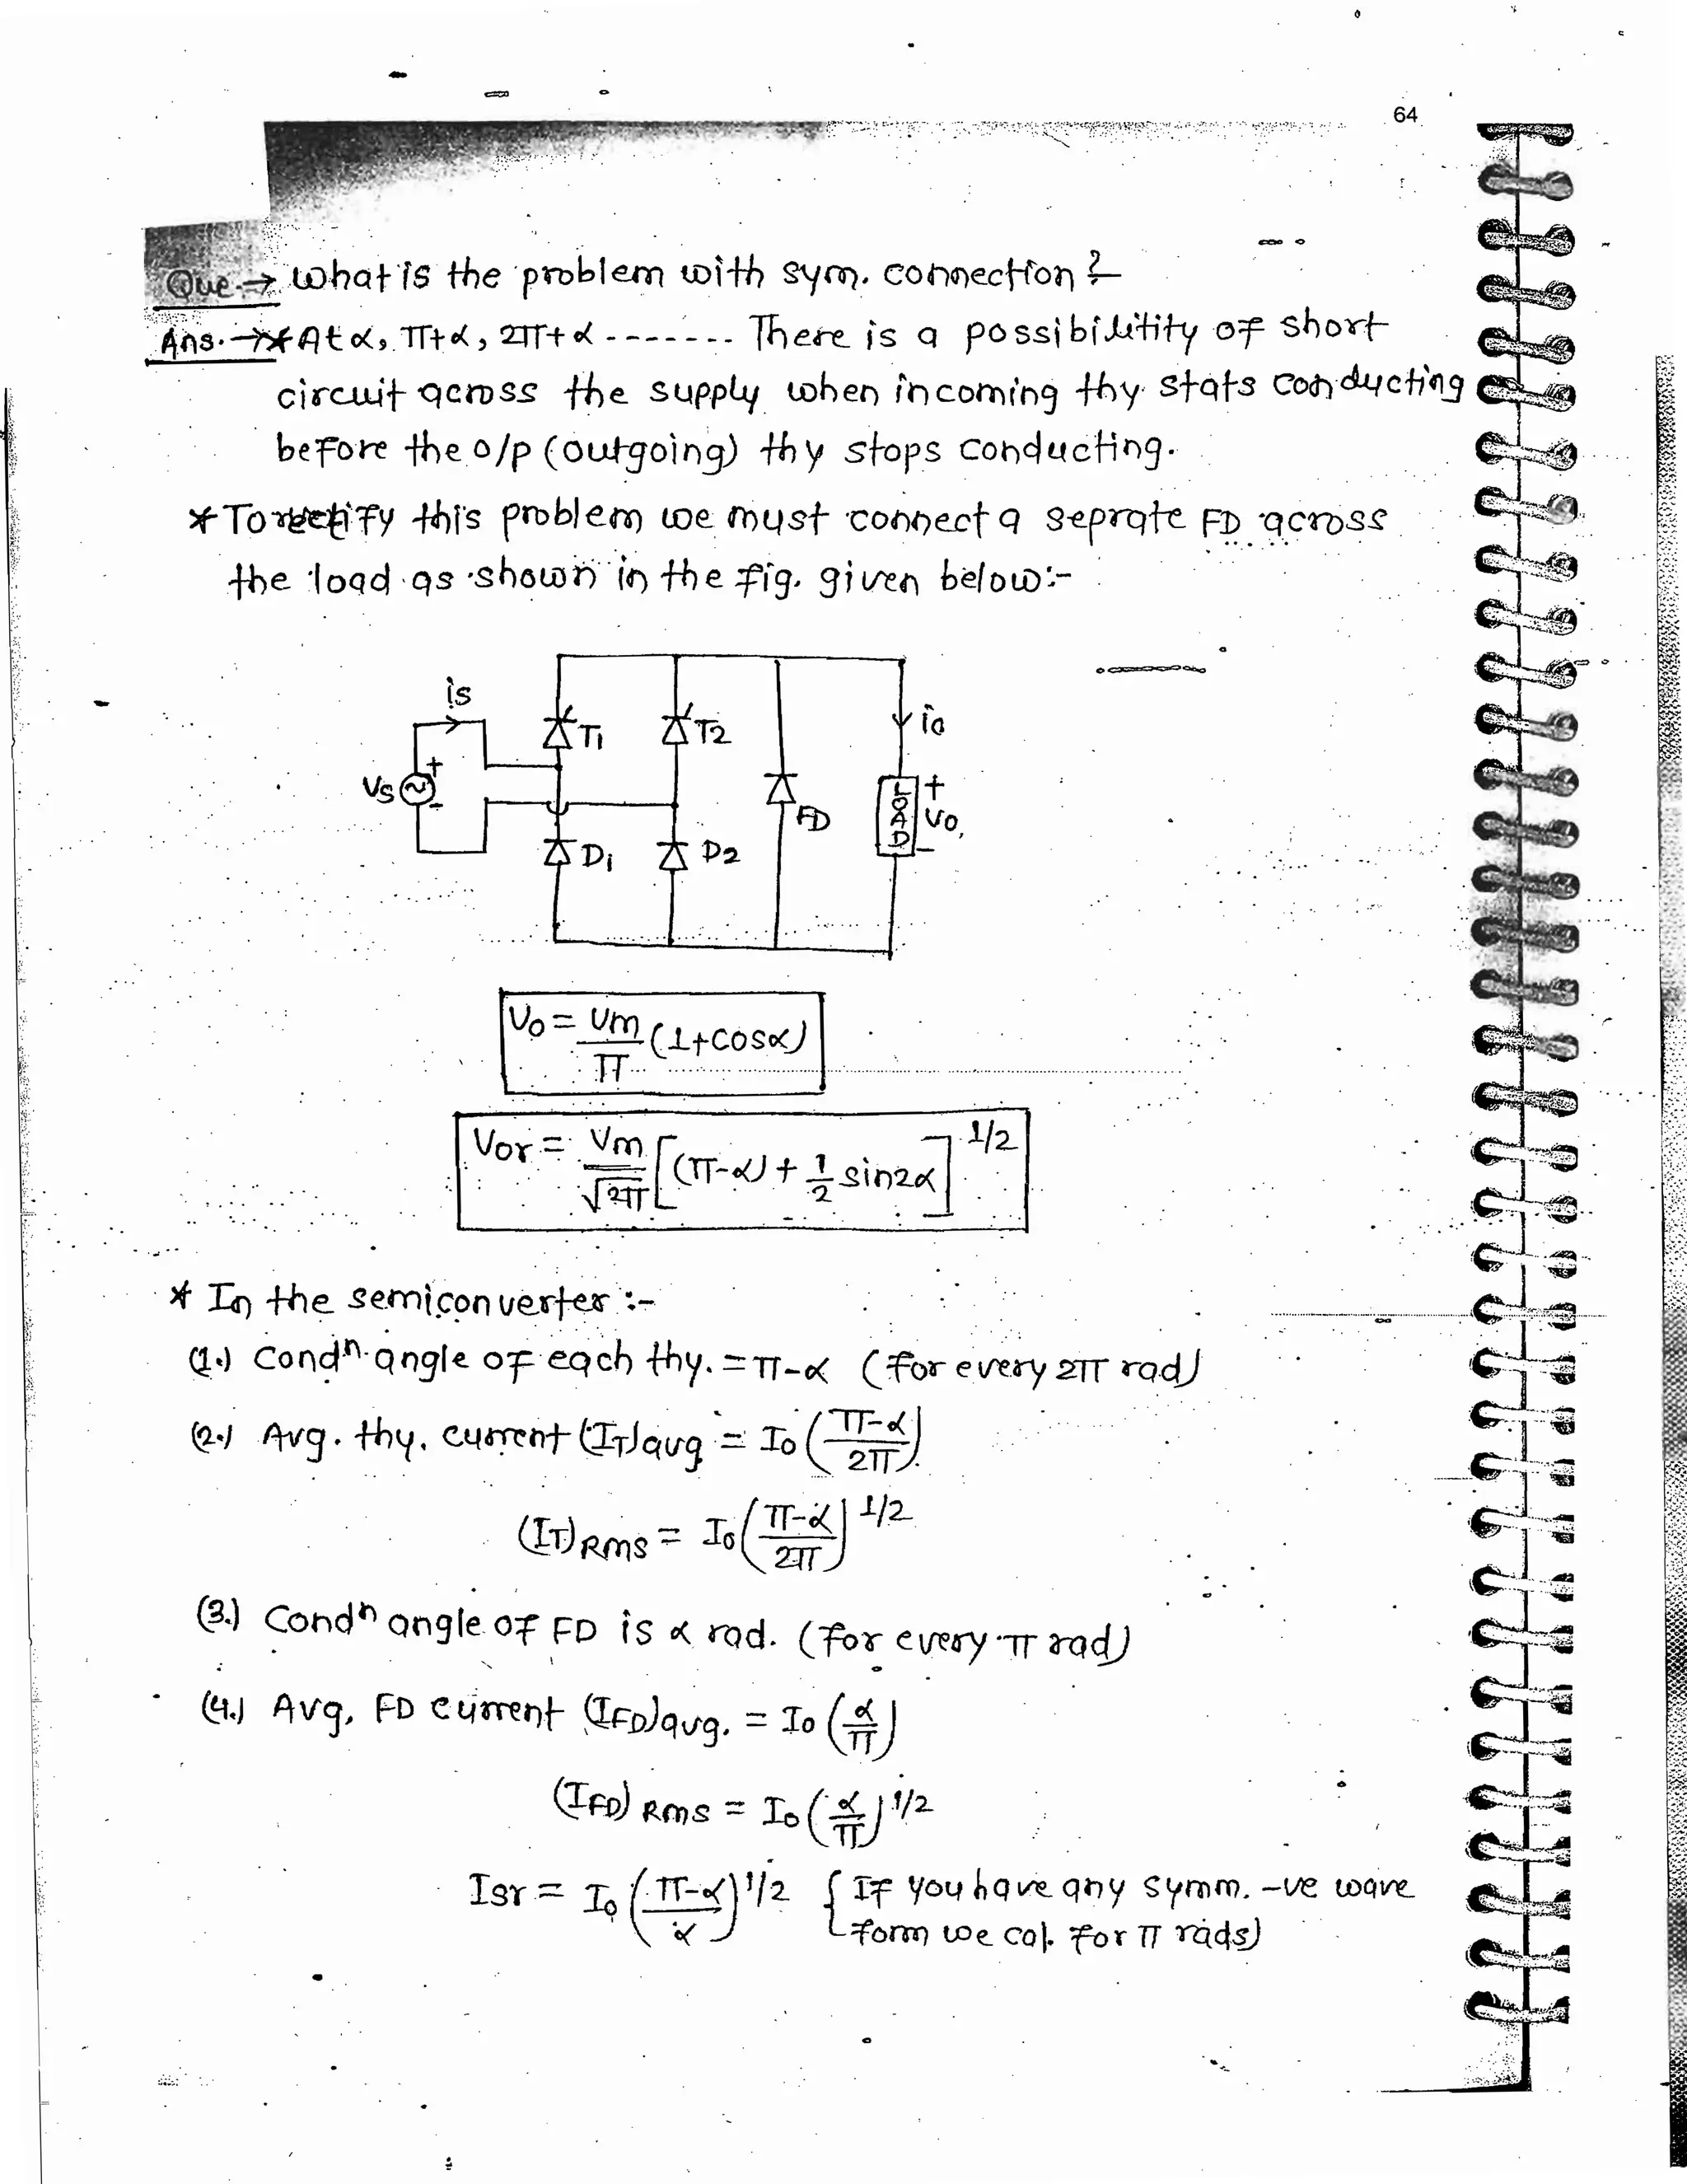 64
Que.→ What is the problem with sym. connection?
Ans.→* At α, π+α, 2π+α ------- There is a possibilitity of short
circuit across the supply when incoming thy. stats conducting
before the o/p (outgoing) thy stops conducting.
* To rectify this problem we must connect a seprate FD across
the load as shown in the fig. given below:-
is
T1 T2 io
Vs + - FD LOAD + Vo -
D1 D2
Vo = Vm/π (1+cosα)
Vor = Vm/√2π [(π-α) + 1/2 sin2α]^1/2
* In the semiconverter :-
(1.) Condn. angle of each thy. = π-α (for every 2π rad)
(2.) Avg. thy. current (IT)avg = Io (π-α/2π)
(IT)RMS = Io (π-α/2π)^1/2
(3.) Condn angle of FD is α rad. (for every π rad)
(4.) Avg. FD current (IFD)avg. = Io (α/π)
(IFD)RMS = Io (α/π)^1/2
Isr = Io (π-α/α)^1/2 { If you have any symm. -ve wave
form we cal. for π rads)